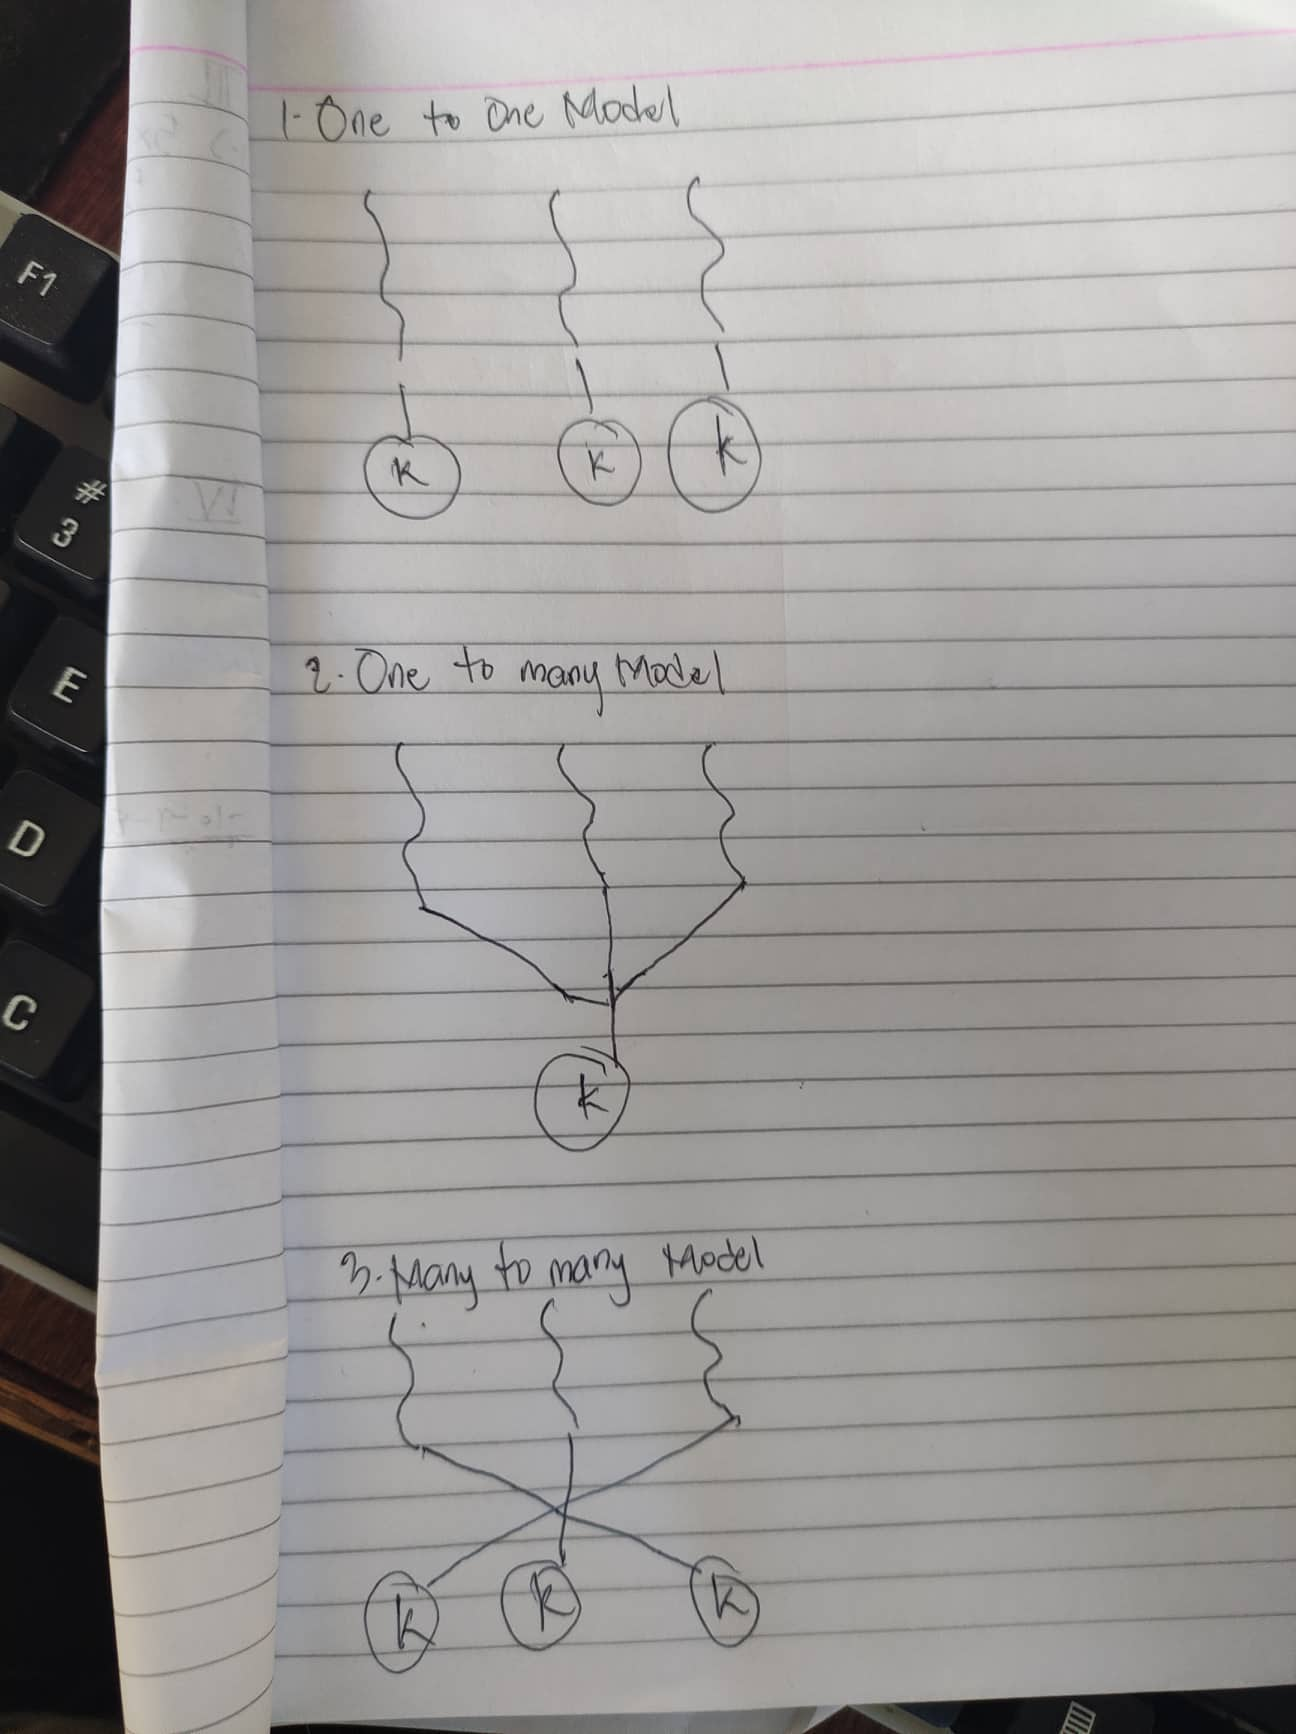 1- One to One Model
K
K
K
2. One to many Model
K
3. Many to many Model
K
K
K
F1
#
3
E
D
C